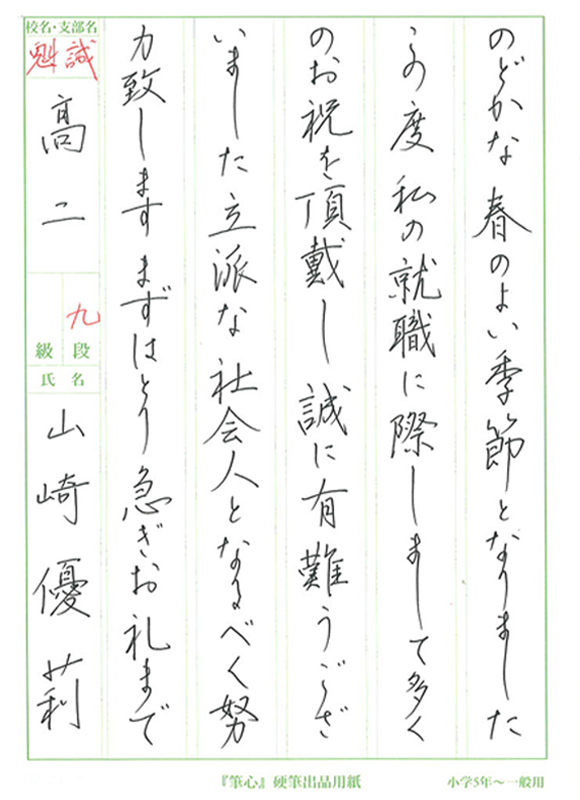 のどかな春のよい季節となりました
この度私の就職に際しまして多く
のお祝を頂戴し誠に有難うござ
いました立派な社会人となるべく努
力致しますまずはとり急ぎお礼まで
校名・支部名
魁誠
高二
九
級 段
氏 名
山崎優莉
『筆心』硬筆出品用紙
小学5年～一般用